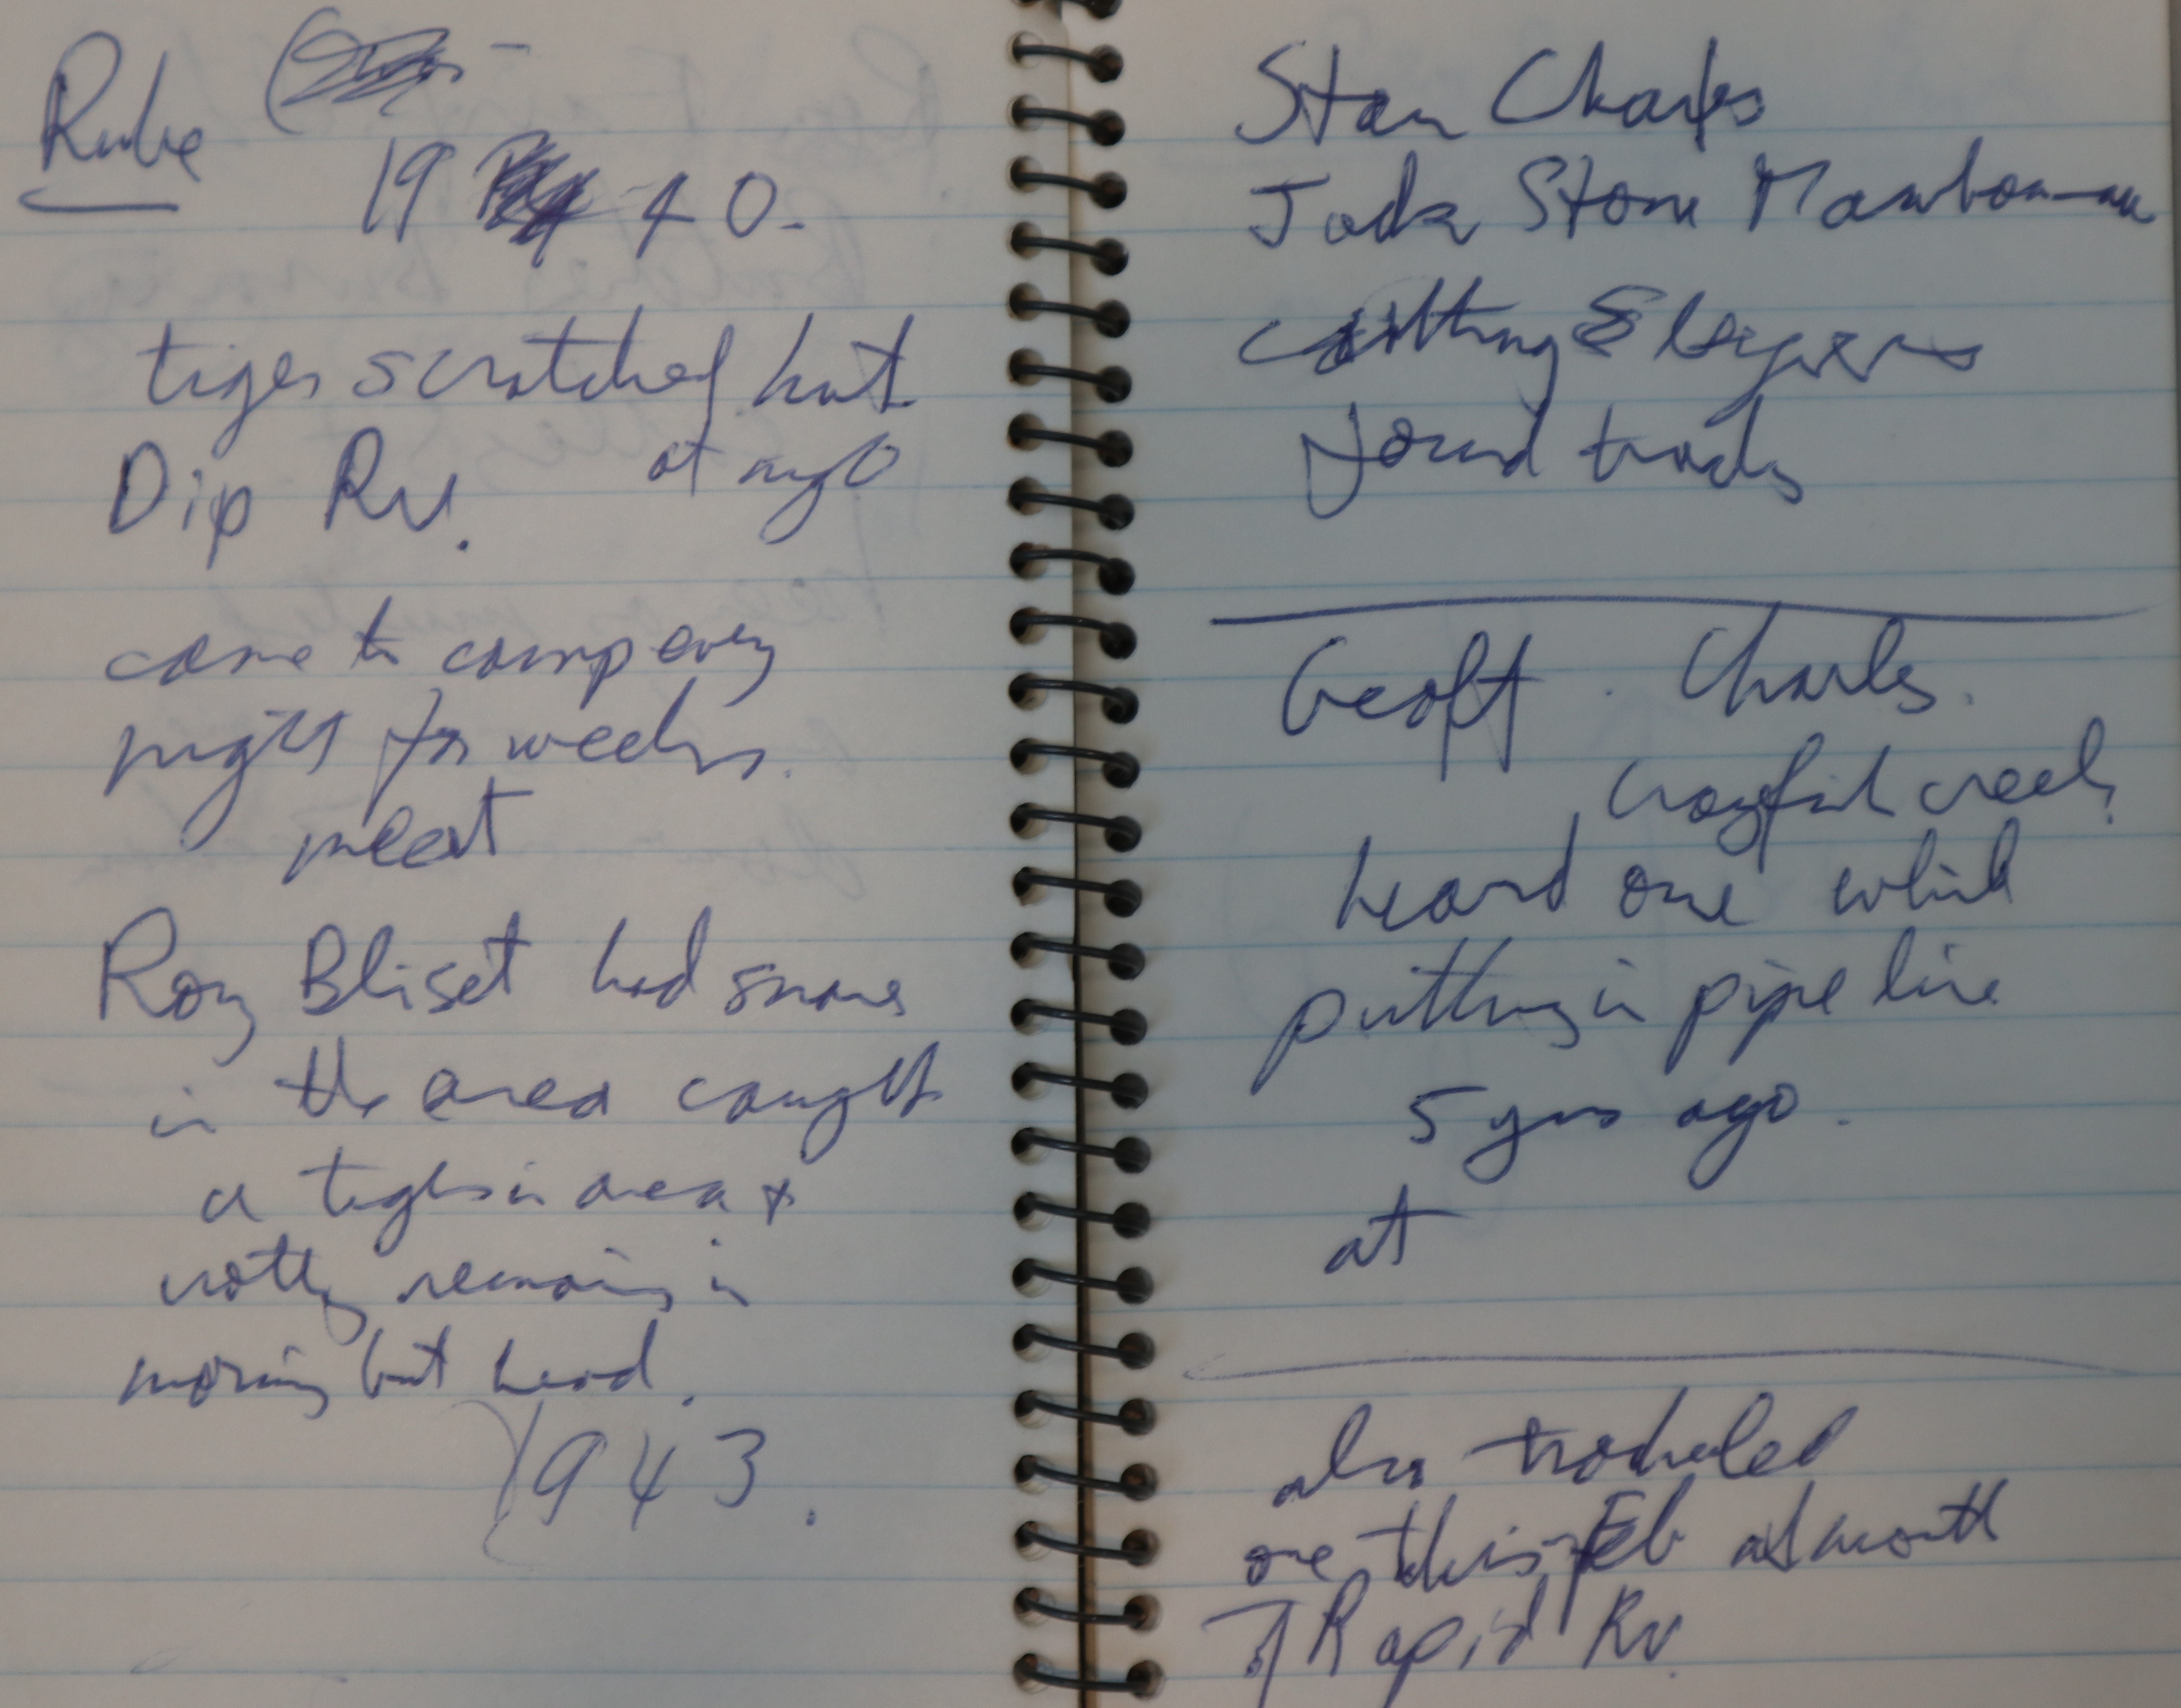 Rube
19 40.
tiger scratched hut
Dip Rv. at night
came to camp every
night for weeks.
meat
Roy Bliset had snares
in the area caught
a tiger in area &
nothing remaining in
morning but head.
1943.
Stan Charles
Jack Stone
cutting sleepers
found tracks
Geoff Charles.
Crayfish creek
heard one while
putting in pipe line
5 yrs ago.
at
also tracked
one this Feb at mouth
of Rapid Rv.